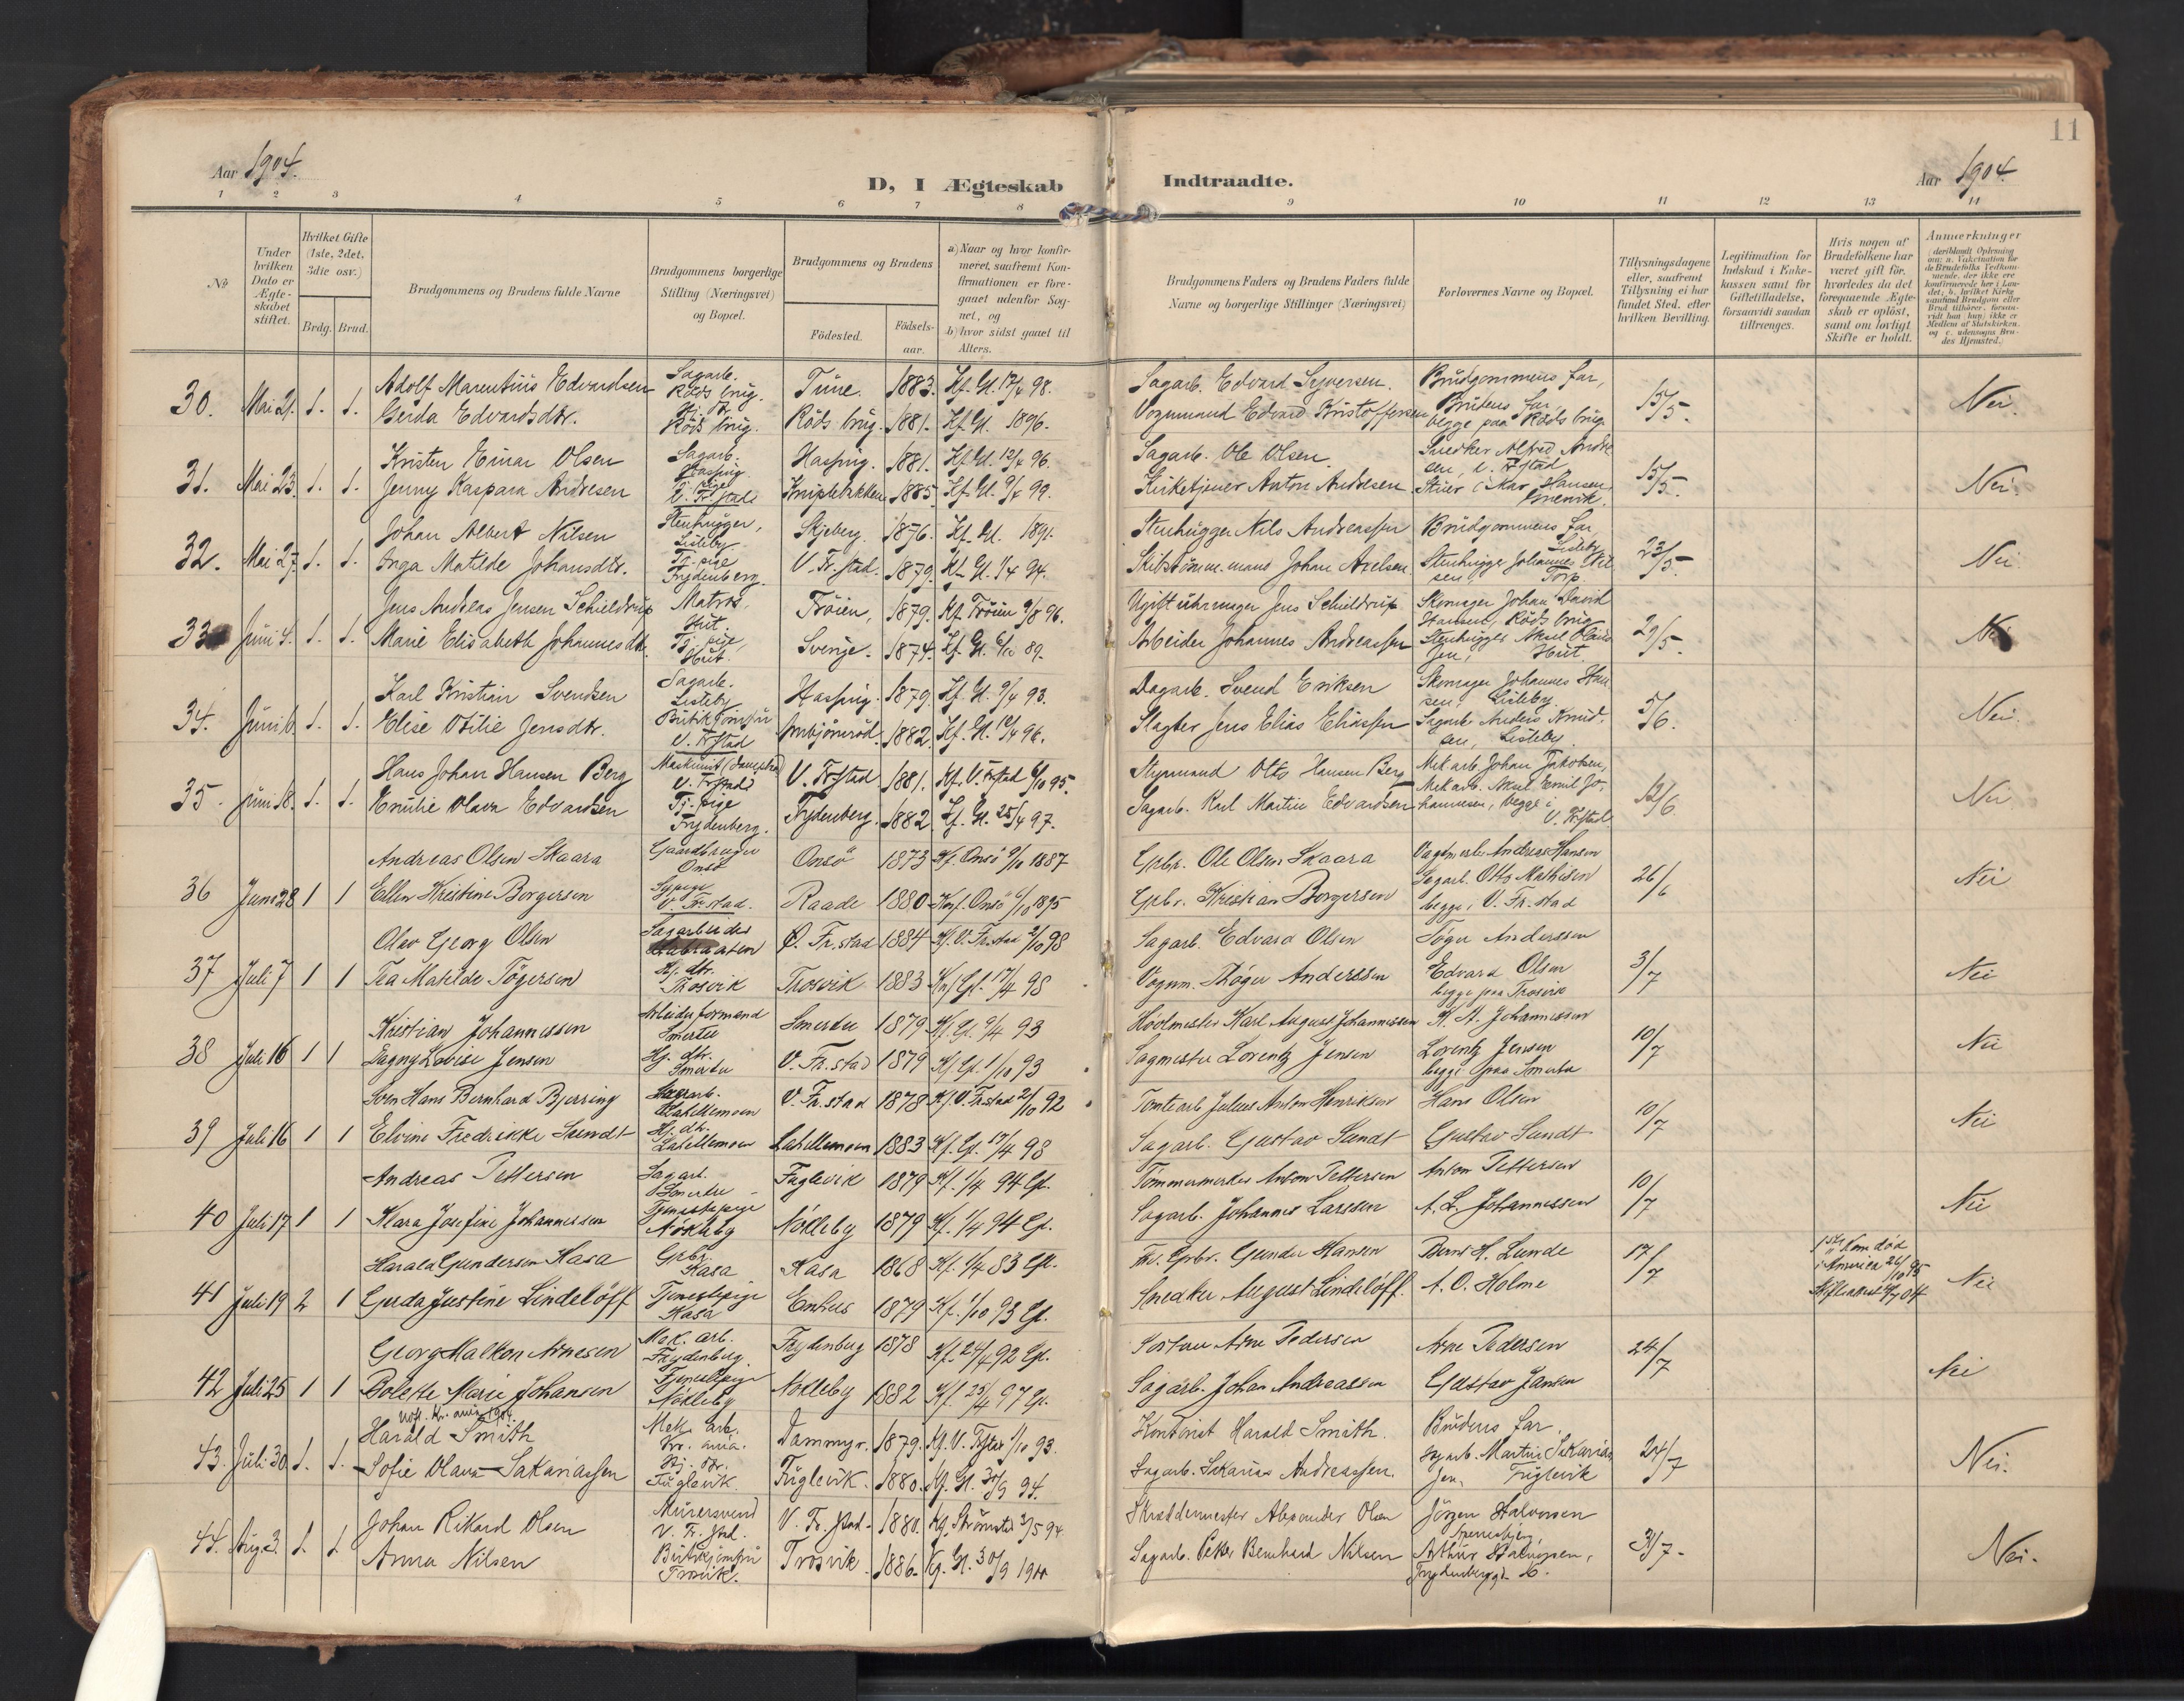 11
Aar 1904.
D, I Ægteskab Indtraadte.
Aar 1904
1 2 3 4 5 6 7 8 9 10 11 12 13 14
No
Under hvilken Dato er Ægteskabet stiftet.
Hvilket Gifte (1ste, 2det, 3die osv.)
Brdg. Brud.
Brudgommens og Brudens fulde Navne
Brudgommens borgerlige Stilling (Næringsvei) og Bopæl.
Brudgommens og Brudens
Födested. Födselsaar.
a) Naar og hvor konfirmeret, saafremt Konfirmationen er foregaaet udenfor Sognet, og
b) hvor sidst gaaet til Alters.
Brudgommens Faders og Brudens Faders fulde Navne og borgerlige Stillinger (Næringsvei)
Forlovernes Navne og Bopæl.
Tillysningsdagene eller, saafremt Tillysning ei har fundet Sted, efter hvilken Bevilling.
Legitimation for Indskud i Enkekassen samt for Giftetilladelse, forsaavidt saadan tiltrænges.
Hvis nogen af Brudefolkene har været gift för, hvorledes da det foregaaende Ægteskab er oplöst, samt om lovligt Skifte er holdt.
Anmerkninger
30. Mai 21. 1. 1. Adolf Marentius Edvardsen Sagarb. Röds brug. Tune. 1883. Kf. Gl. 17/4 98. Sagarb. Edvard Syversen. Brudgommens far,
Gerda Edvardsdtr. Hj. dtr. Röds brug. Röds brug. 1881. Kf. Gl. 1896. Vognmand Edvard Kristoffersen Brudens far, begge paa Röds brug. 15/5. Nei.
31. Mai 23. 1. 1. Kristen Einar Olsen Sagarb. Hasping. Hasping. 1881. Kf. Gl. 12/4 96. Sagarb. Ole Olsen. Snedker Alfred Andresen, V. Frstad
Jenny Kaspara Andresen Tj. pige V. Fr.stad Kniplebakken 1885. Kf. Gl. 9/4 99. Kirketjener Anton Andresen 15/5. Nei.
32. Mai 27. 1. 1. Johan Albert Nilsen Stenhugger, Lisleby Skjeberg. 1876. Kf. Gl. 1891. Stenhugger Nils Andreassen Brudgommens far Lisleby
Inga Matilde Johansdtr. Tj. pige Frydenberg. V. Fr.stad. 1879. Kf. Gl. 1/4 94. Skibstömm.mand Johan Axelsen Stenhugger Johannes Nilsen, Torp. 23/5. Nei
33 Juni 4. 1. 1. Jens Andreas Jensen Schieldrup Matros, Hut. Tröien, 1879. Kf. Tröien 9/8 96. Ugift uhrmager Jens Schieldrup Skomager Johan David Hansen, Röds brug
Marie Elisabeth Johannesdtr. Tj. pige, Hut. Sverige. 1874. Kf. Gl. 6/10 89. Arbeider Johannes Andreassen Stenhugger Aksel Olaussen, Hut 29/5. Nei
34. Juni 6. 1. 1. Karl Kristian Svendsen Sagarb. Lisleby Hasping. 1879. Kf. Gl. 9/4 93. Dagarb. Svend Eriksen Skomager Johannes Hansen, Lisleby
Elise Otilie Jensdtr. Butikjomfru V. Frstad 1882. Kf. Gl. 12/4 96. Slagter Jens Elias Eliassen Sagarb. Anders Knudsen, Lisleby. 5/6. Nei.
35. Juni 18. 1. 1. Hans Johan Hansen Berg Maskinist V. Frstad V. Frstad 1881. Kf. V. Frstad 6/10 95. Styrmand Otto Hansen Berg Mek. arb. Johan Jakobsen,
Emilie Olava Edvardsen Tj. pige Frydenberg. Frydenberg. 1882 Kf. Gl. 25/4 97. Sagarb. Karl Martin Edvardsen Mek arb. Aksel Emil Johannesen, begge i V. Frstad 12/6. Nei
36 Juni 28 1 1 Andreas Olsen Skaara Gaardbruger Onsö Onsö 1873 Kf. Onsö 9/10 1887 Grbr. Ole Olsen Skaara Andreas Hansen
Ellen Kristine Borgersen Sypige V. Fr.stad. Raade 1880 Konf. Onsö 6/10 1895 Grbr. Kristian Borgersen Sagarb. Otto Mathisen begge i V. Fr.stad 26/6 Nei
37 Juli 7 1 1 Olav Georg Olsen Sagarbeider Ø. Fr.stad 1884 Kf. V. Fr.stad 2/10 98 Sagarb. Edvard Olsen Töger Anderssen
Tea Matilde Tögersen Hj. dtr. Trosvik Trosvik 1883 Konf Gl. 17/4 98 Vognm. Töger Anderssen Edvard Olsen begge paa Trosvik 3/7 Nei
38 Juli 16 1 1 Kristian Johannessen Arbeidsformand Smertu Smertu 1879 Kf. Gl. 9/4 93 Karl August Johannessen K. A. Johannessen
Dagny Lovise Jensen Hj. dtr. Smertu V. Fr.stad 1879 Kf Gl. 1/10 93 Sagmester Lorentz Jensen Lorentz Jensen begge paa Smertu 10/7 Nei
39 Juli 16 1 1 Sven Hans Bernhard Bjerring Sagarb. Labellemoen V. Fr.stad 1878 Kf. V. Fr.stad 2/10 92 Tomtearb. Julius Anton Henriksen Hans Olsen
Elvine Fredrikke Sundt Hj. dtr. Labellemoen Labellemoen 1883 Kf. Gl. 17/4 98 Sagarb. Gustav Sundt Gustav Sundt 10/7 Nei
40 Juli 17 1 1 Andreas Pettersen Sagarb. Smertu Fuglevik 1879 Kf. 1/4 94 Gl. Tömmermerker Anton Pettersen Anton Pettersen
Klara Josefine Johannessen Tjenestepige Nökleby Nökleby 1879 Kf. 1/4 94 Gl. Sagarb. Johannes Larssen A. L. Johannessen 10/7 Nei
41 Juli 19 2 1 Harald Gundersen Kasa Grbr. Kasa Kasa 1868 Kf. 1/4 83 Gl. Grbr. Gunder Hansen Bernt H. Lunde 17/7 1ste Kone död i America 26/10 95
Gerda Justine Lindelöff Tjenestepige Kasa Enhus 1879 Kf. 1/10 93 Gl. Snedker August Lindelöff. A. O. Holme Nei
42 Juli 25 1 1 Georg Malkon Arnesen Mek. arb. Frydenberg. Frydenberg 1878 Kf. 24/4 92 Gl. Arne Pedersen Arne Pedersen
Bolette Marie Johansen Tjenestepige Nökleby Nökleby 1882 Kf. 25/4 97 Gl. Sagarb. Johan Andreassen Gustav Jansen 24/7 Nei
43. Juli 30. 1. 1. Harald Smith Mek. arb. Kr. ania. Dammyr. 1879. Kf. V. Frstad 1/10 93. Kontorist Harald Smith. Brudens far.
Sofie Olava Sakariassen Hj. dtr. Fuglevik. Fuglevik. 1880. Kf. Gl. 30/9 94. Sagarb. Sakarias Andreassen. Sagarb. Martin Sakariassen, Fuglevik 24/7 Nei.
44. Aug. 3. 1. 1. Johan Rikard Olsen Murersvend V. Fr. stad. V. Fr. stad. 1880. Kf. Strömstad 3/5 94. Skreddermester Alexander Olsen Jörgen Halvorsen
Anna Nilsen Butikjomfru Trosvik. Trosvik 1886. Kf. Gl. 30/9 1900 Sagarb. Peter Bernhard Nilsen Arthur Halvorsen, Frydenberggt. 16. 31/7. Nei.